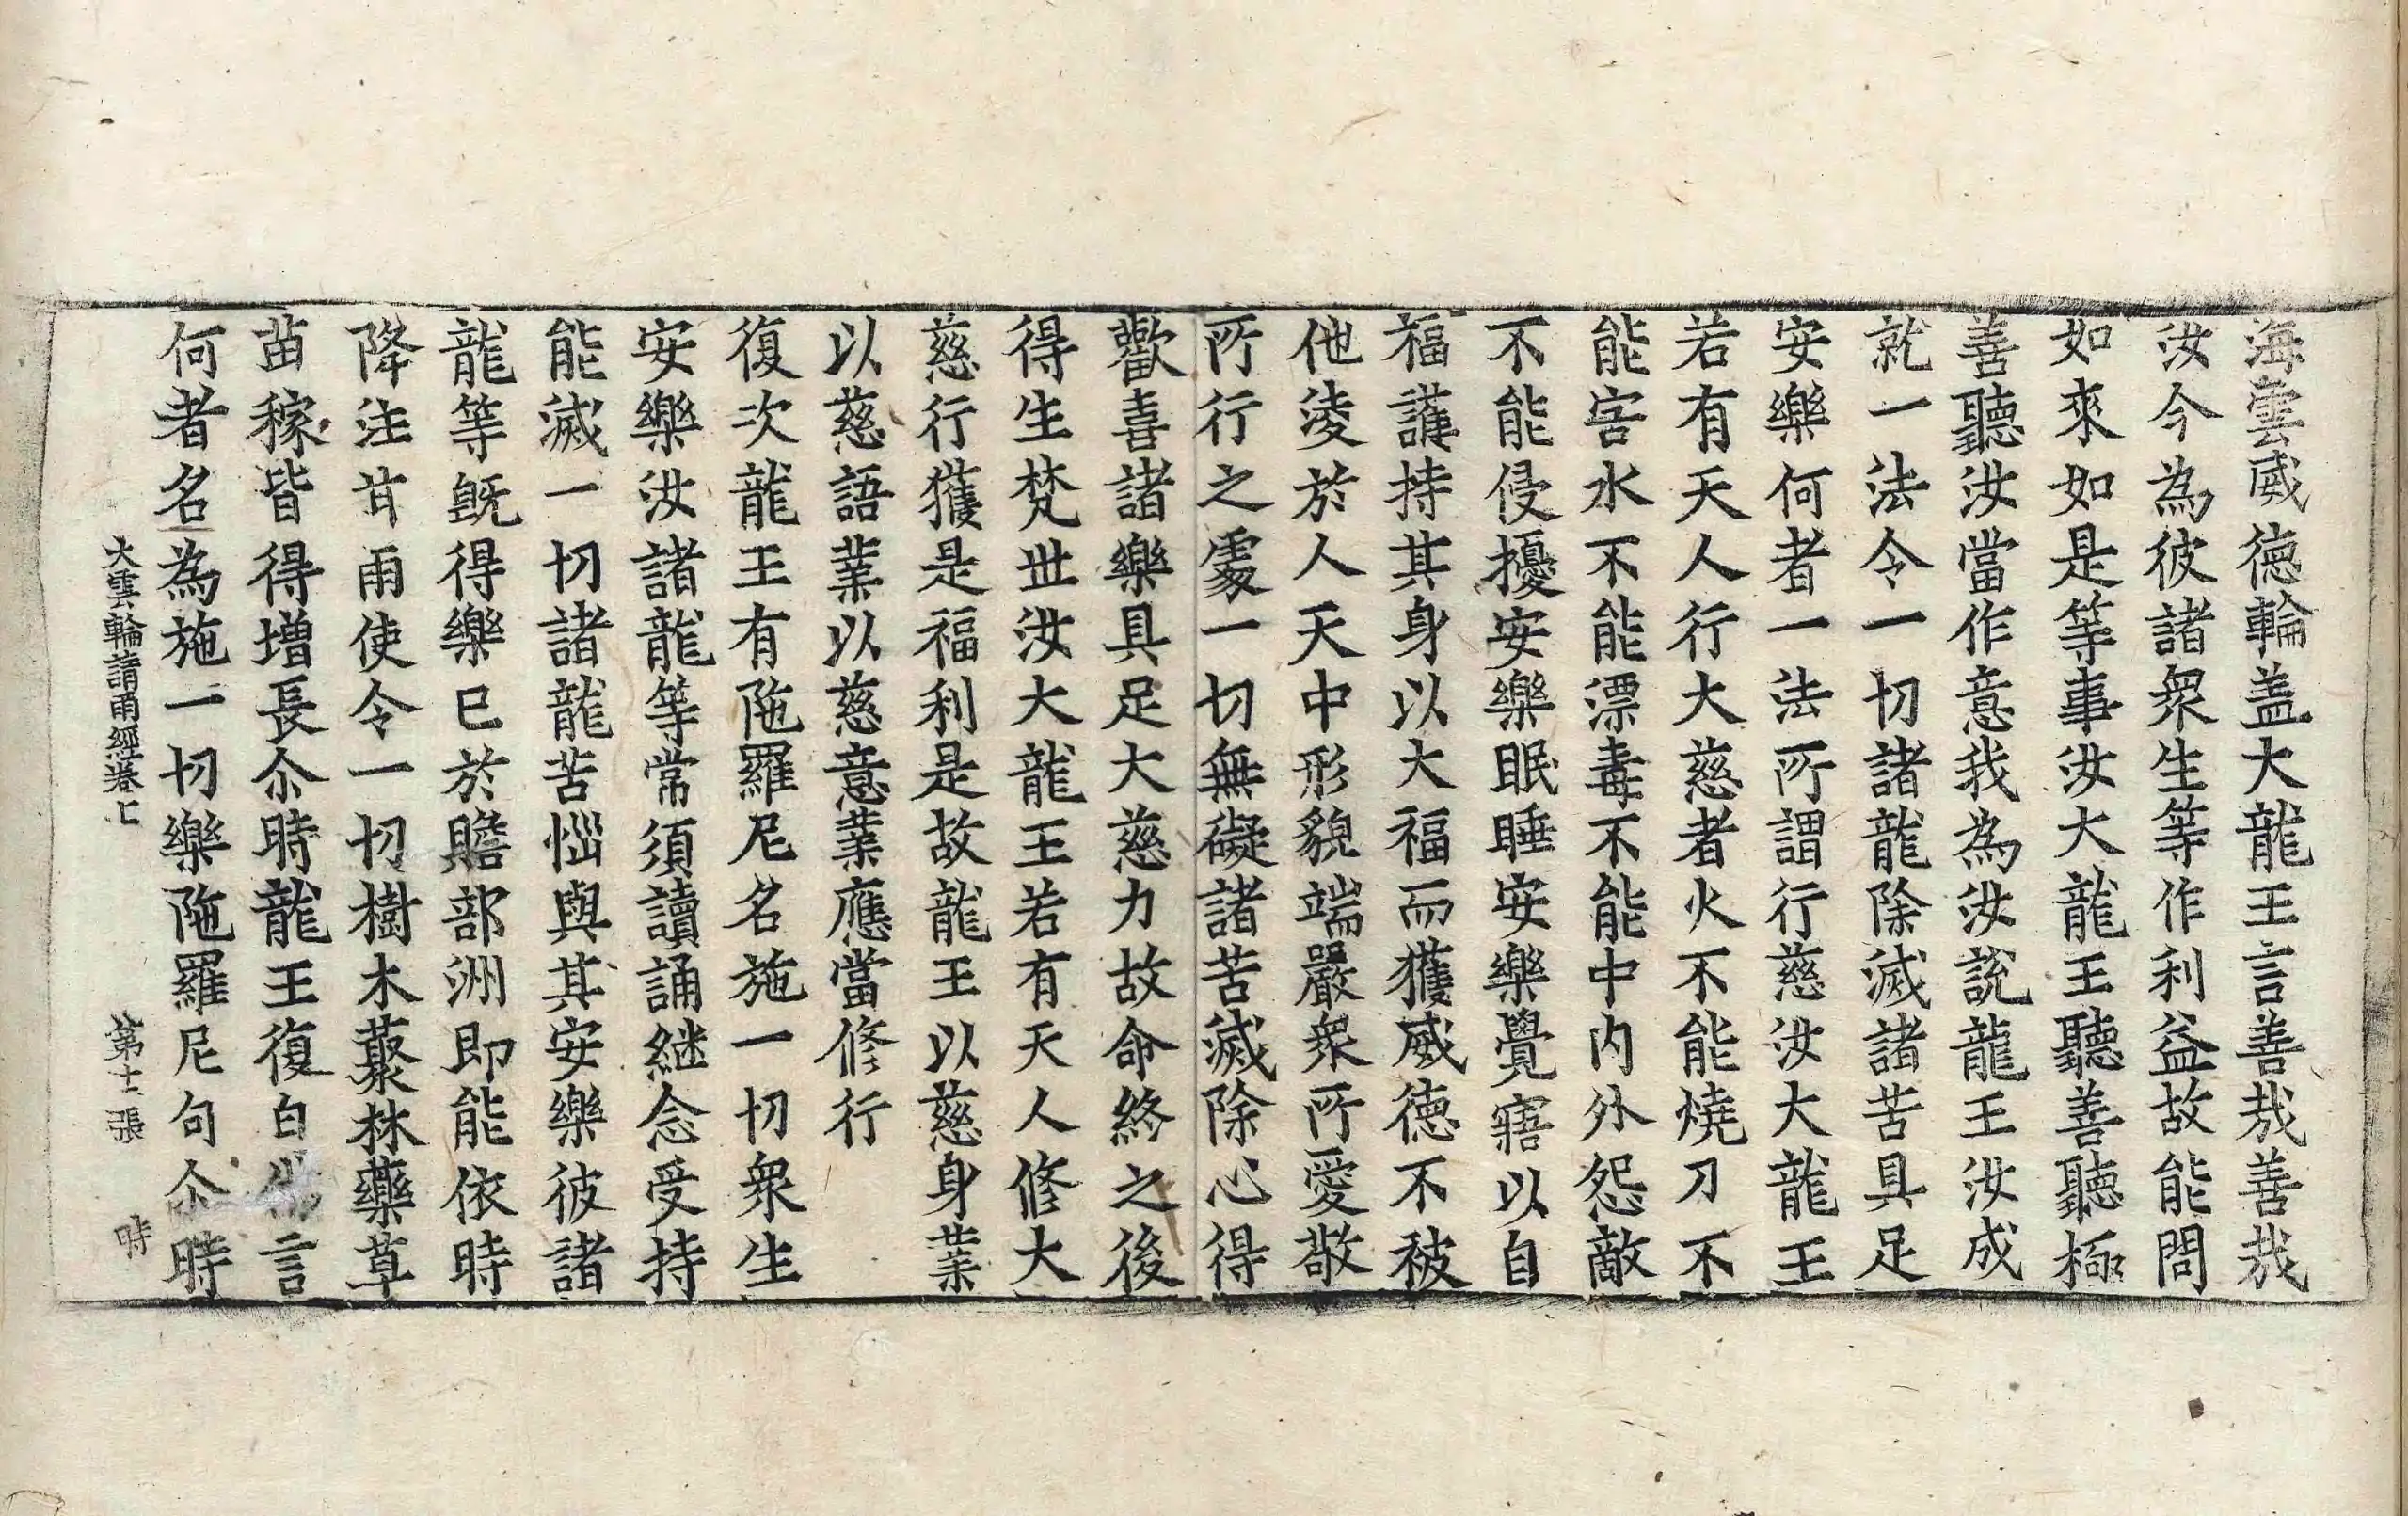 海雲威德輪盖大龍王言善㢤善㢤
汝今為彼諸衆生等作利益故能問
如來如是等事汝大龍王聽善聽極
善聽汝當作意我為汝說龍王汝成
就一法令一切諸龍除滅諸苦具足
安樂何者一法所謂行慈汝大龍王
若有天人行大慈者火不能燒刀不
能害水不能漂毒不能中内外怨敵
不能侵擾安樂眠睡安樂覺寤以自
福護持其身以大福而獲威德不被
他淩於人天中形貌端嚴衆所愛敬
所行之處一切無礙諸苦滅除心得
歡喜諸樂具足大慈力故命終之後
得生梵世汝大龍王若有天人修大
慈行獲是福利是故龍王以慈身業
以慈語業以慈意業應當修行
復次龍王有陁羅尼名施一切衆生
安樂汝諸龍等常須讀誦継念受持
能滅一切諸龍苦惱與其安樂彼諸
龍等既得樂已於贍部洲即能依時
降注甘雨使令一切樹木藂林藥草
苗稼皆得增長尒時龍王復白佛言
何者名為施一切樂陁羅尼句尒時
大雲輪請雨經卷上　第十一張　時